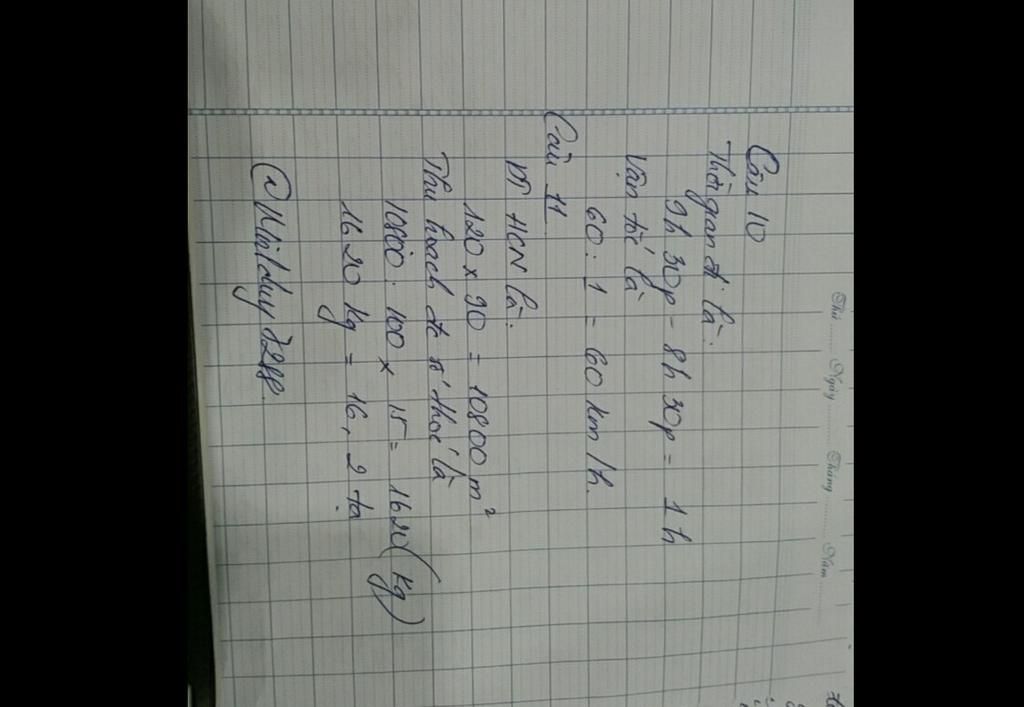 Thứ ........ Ngày ........ Tháng ........ Năm ........
Câu 10
Thời gian đi là.
9h 30p - 8h 30p = 1h
Vận tốc là
60 : 1 = 60 km/h.
Câu 11
DT HCN là.
120 x 90 = 10800 m²
Thu hoạch đc số thóc là
10800 : 100 x 15 = 1620 (kg)
1620 kg = 16,2 tạ